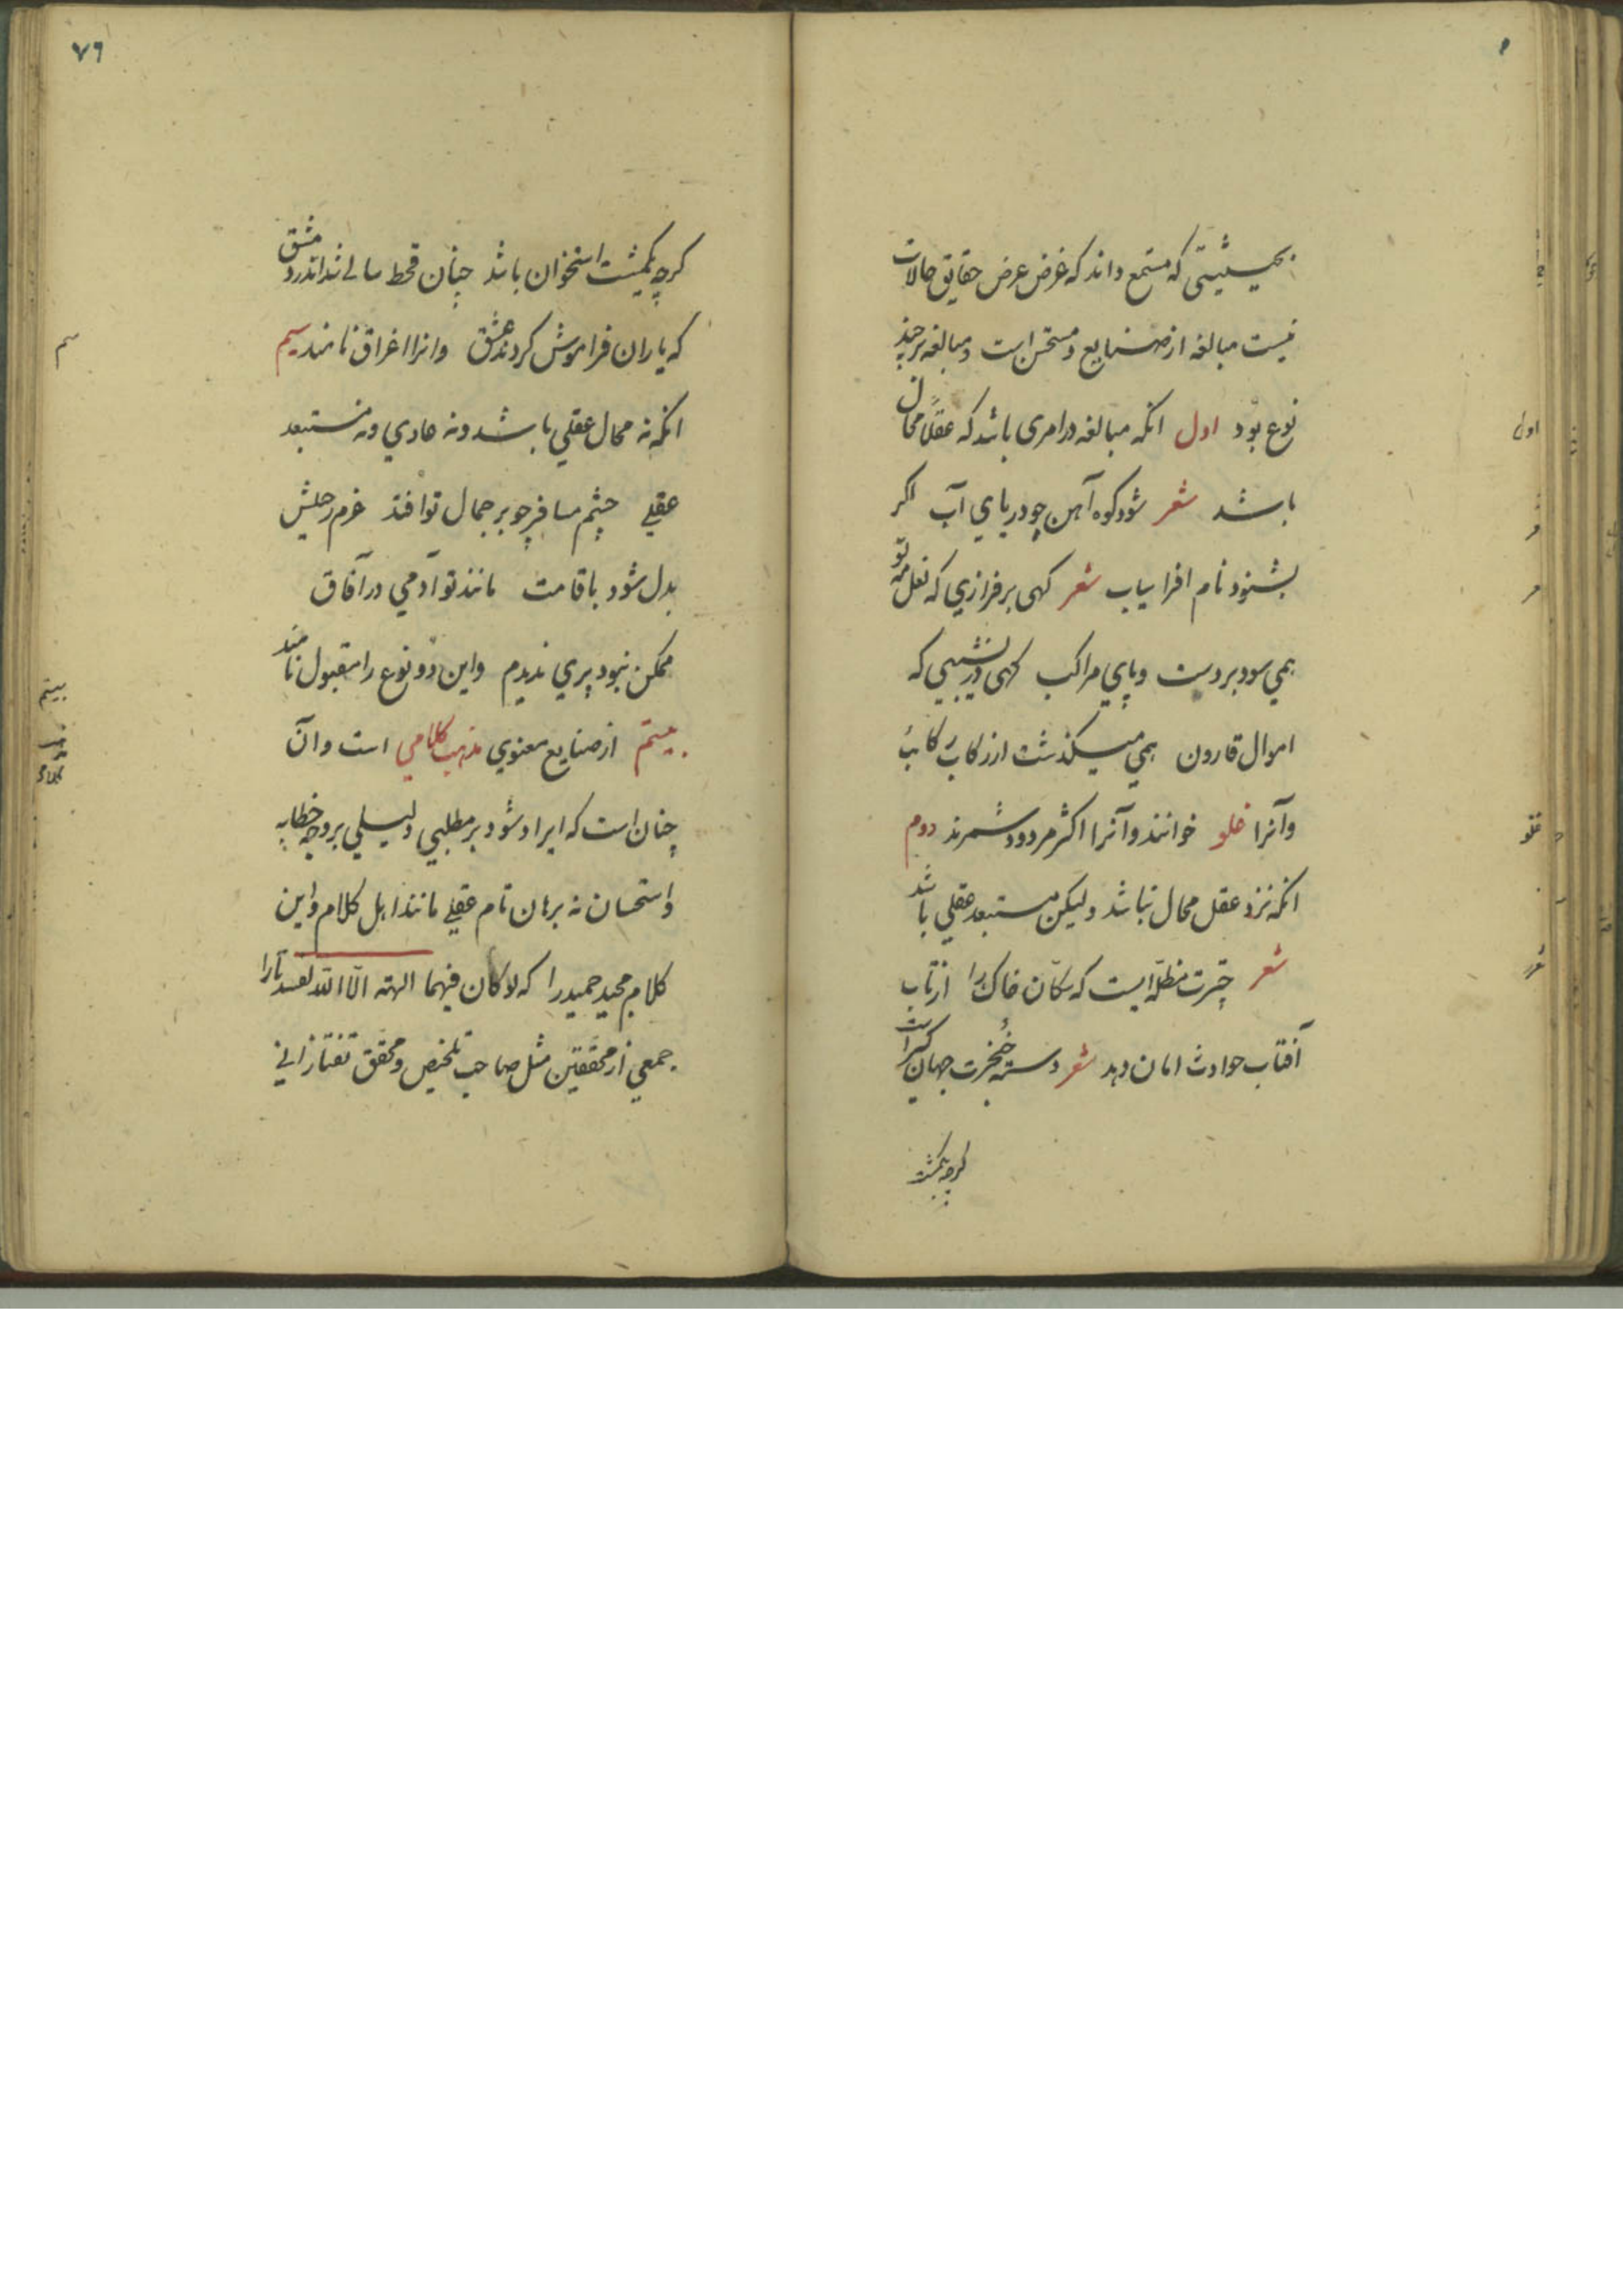 بحیثیتی که مستمع داند که غرض عرض حقایق حالات
نیست مبالغه از صنایع و مستحسن است و مبالغه بر چند
نوع بود اول انکه مبالغه در امری باشد که عقلاً محال
باشد شعر شود کوه آهن چو دریای آب اکر
بشنود نام افراسیاب شعر کهی بر فرازي که نعل مه تو
همي سود بر دست و پاي مراکب کهی در نشیبي که
اموال قارون همي میکذشت از رکاب رکائب
وآنرا غلو خوانند وآنرا اکثر مردود شمرند دوم
انکه نزد عقل محال نباشد ولیکن مستبعد عقلي باشد
شعر چترت مظله ایست که سکّان خاک را از تاب
آفتاب حوادث امان دهد شعر دسته خنجرت جهان کیراست
کرچه یکمشت
۷۶
کرچه یکمشت استخوان باشد چنان قحط سالے شد اندر دمشق
که یاران فراموش کردند عشق وانرا اغراق نامند سیم
سیم
انکه نه محال عقلي باشد ونه عادي ونه مستبعد
عقلے چشم مسافر چو بر جمال تو افتد عزم رحیلش
بدل شود باقامت مانند تو آدمي در آفاق
ممکن نبود پري ندیدم واین دو نوع را مقبول نامند
بیستم از صنایع معنوي مذهب کلامي است وآن
بیستم
مذهب
کلامی
چنان است که ایراد شود بر مطلبي دلیلي بر وجه خطابه
واستحسان نه برهان تام عقلے مانند اهل کلام واین
کلام مجید حمید را که لو کان فیهما الهته الّا الله لفسدتا را
جمعي از محققین مثل صاحب تلخیص ومحقق تفتازانے
اول
غلو